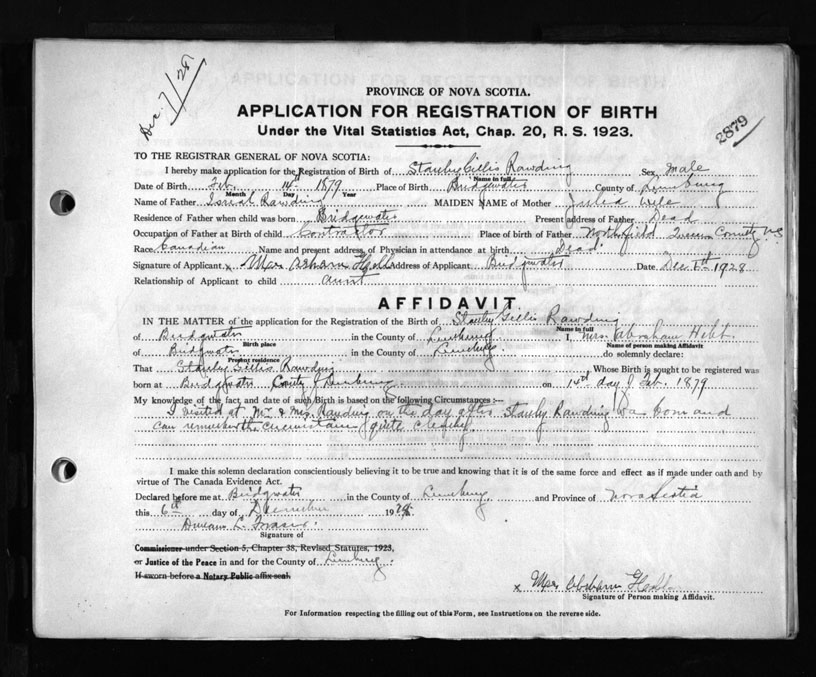 Dec. 7/28
2879
PROVINCE OF NOVA SCOTIA.
APPLICATION FOR REGISTRATION OF BIRTH
Under the Vital Statistics Act, Chap. 20, R. S. 1923.
TO THE REGISTRAR GENERAL OF NOVA SCOTIA:
I hereby make application for the Registration of Birth of Stanley Gillis Rawding Sex Male
Name in full
Date of Birth Feb. 14th 1879 Place of Birth Bridgewater County of Lunenburg
Month Day Year
Name of Father Rawding MAIDEN NAME of Mother
Residence of Father when child was born Bridgewater Present address of Father Dead
Occupation of Father at Birth of child Contractor Place of birth of Father Northfield Queens County N.S
Race Canadian Name and present address of Physician in attendance at birth Dead
Signature of Applicant x Mrs Address of Applicant Bridgewater Date Dec 1928
Relationship of Applicant to child aunt
AFFIDAVIT
IN THE MATTER of the application for the Registration of the Birth of Stanley Gillis Rawding
Name in full
of Bridgewater in the County of Lunenburg I, Mrs. Abraham Hebb
Birth place Name of person making Affidavit
of Bridgewater in the County of Lunenburg do solemnly declare:
Present residence
That Stanley Gillis Rawding Whose Birth is sought to be registered was
born at Bridgewater County of Lunenburg on 14th day of Feb. 1879
My knowledge of the fact, and date of such Birth is based on the following Circumstances :—
I visited at Mr & Mrs Rawding on the day after Stanley Rawding was born and
can remember the circumstance quite clearly.
I make this solemn declaration conscientiously believing it to be true and knowing that it is of the same force and effect as if made under oath and by
virtue of The Canada Evidence Act.
Declared before me at Bridgewater in the County of Lunenburg and Province of Nova Scotia
this 6th day of December 1928.
Duncan L. Fraser
Signature of
Commissioner under Section 5, Chapter 38, Revised Statutes, 1923,
or Justice of the Peace in and for the County of Lunenburg.
If sworn before a Notary Public affix seal.
x Mrs Abraham Hebb
Signature of Person making Affidavit.
For Information respecting the filling out of this Form, see Instructions on the reverse side.